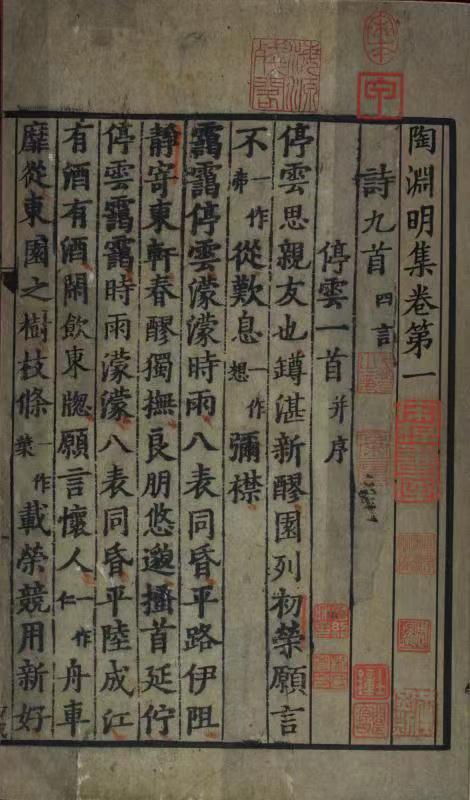 陶淵明集卷第一
詩九首四言
停雲一首并序
停雲思親友也罇湛新醪園列初榮願言
不一作弗從歎息一作想彌襟
靄靄停雲濛濛時雨八表同昏平路伊阻
靜寄東軒春醪獨撫良朋悠邈搔首延佇
停雲靄靄時雨濛濛八表同昏平陸成江
有酒有酒閒飲東牕願言懷人一作仁舟車
靡從東園之樹枝條一作葉載榮競用新好